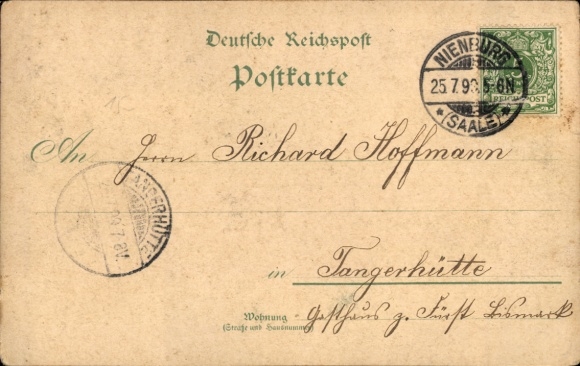 Deutsche Reichspost
Postkarte
NIENBURG
25.7.9 5-6N
*(SAALE)*
REICHSPOST
15
An Herrn Richard Hoffmann
TANGERHÜTTE
7-8V.
in Tangerhütte
Wohnung
(Straße und Hausnummer)
Gasthaus z. Fürst Bismark